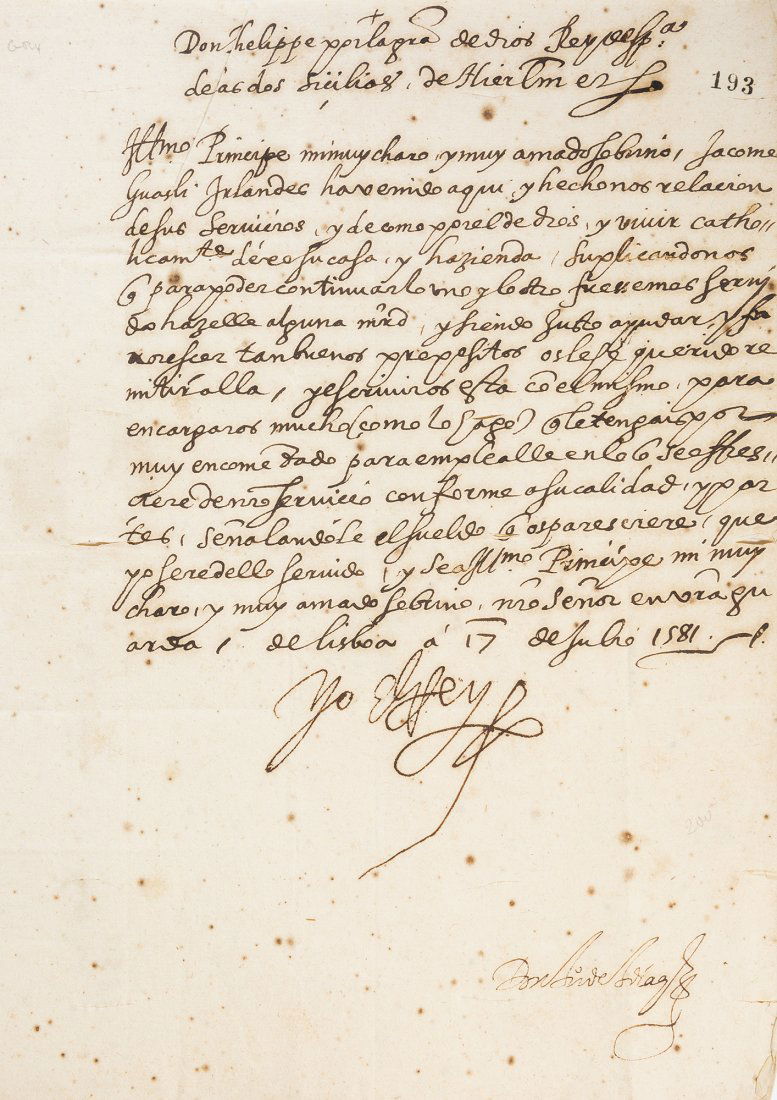 +
Don Phelippe por la gra de dios Rey de Spa.
de las dos Sicilias, de Hierlm etc
193
Illmo Principe mi muy charo, y muy amado sobrino, Jacome
Guasli Irlandes ha venido aqui, y hechonos relacion
de sus servicios, y de como por el de dios, y vivir catho-
licamte dexo su casa, y hazienda, suplicandonos
q para poder continuar lo uno y lo otro fuessemos servi
do hazelle alguna mrd, y siendo justo ayudar, y fa
vorescer tan buenos propositos os le he querido re
mitir alla, y escriviros esta con el mismo, para
encargaros mucho (como lo hago) q le tengais por
muy encomendado para emplealle en lo q se offres-
ciere de nro servicio conforme a su calidad, y par
tes, señalandole el sueldo q os paresciere, que
yo sere dello servido, y sea Illmo Principe mi muy
charo, y muy amado sobrino, nro Señor en vra gu
arda, de lisboa á 17 de Julio 1581.
Yo el Rey